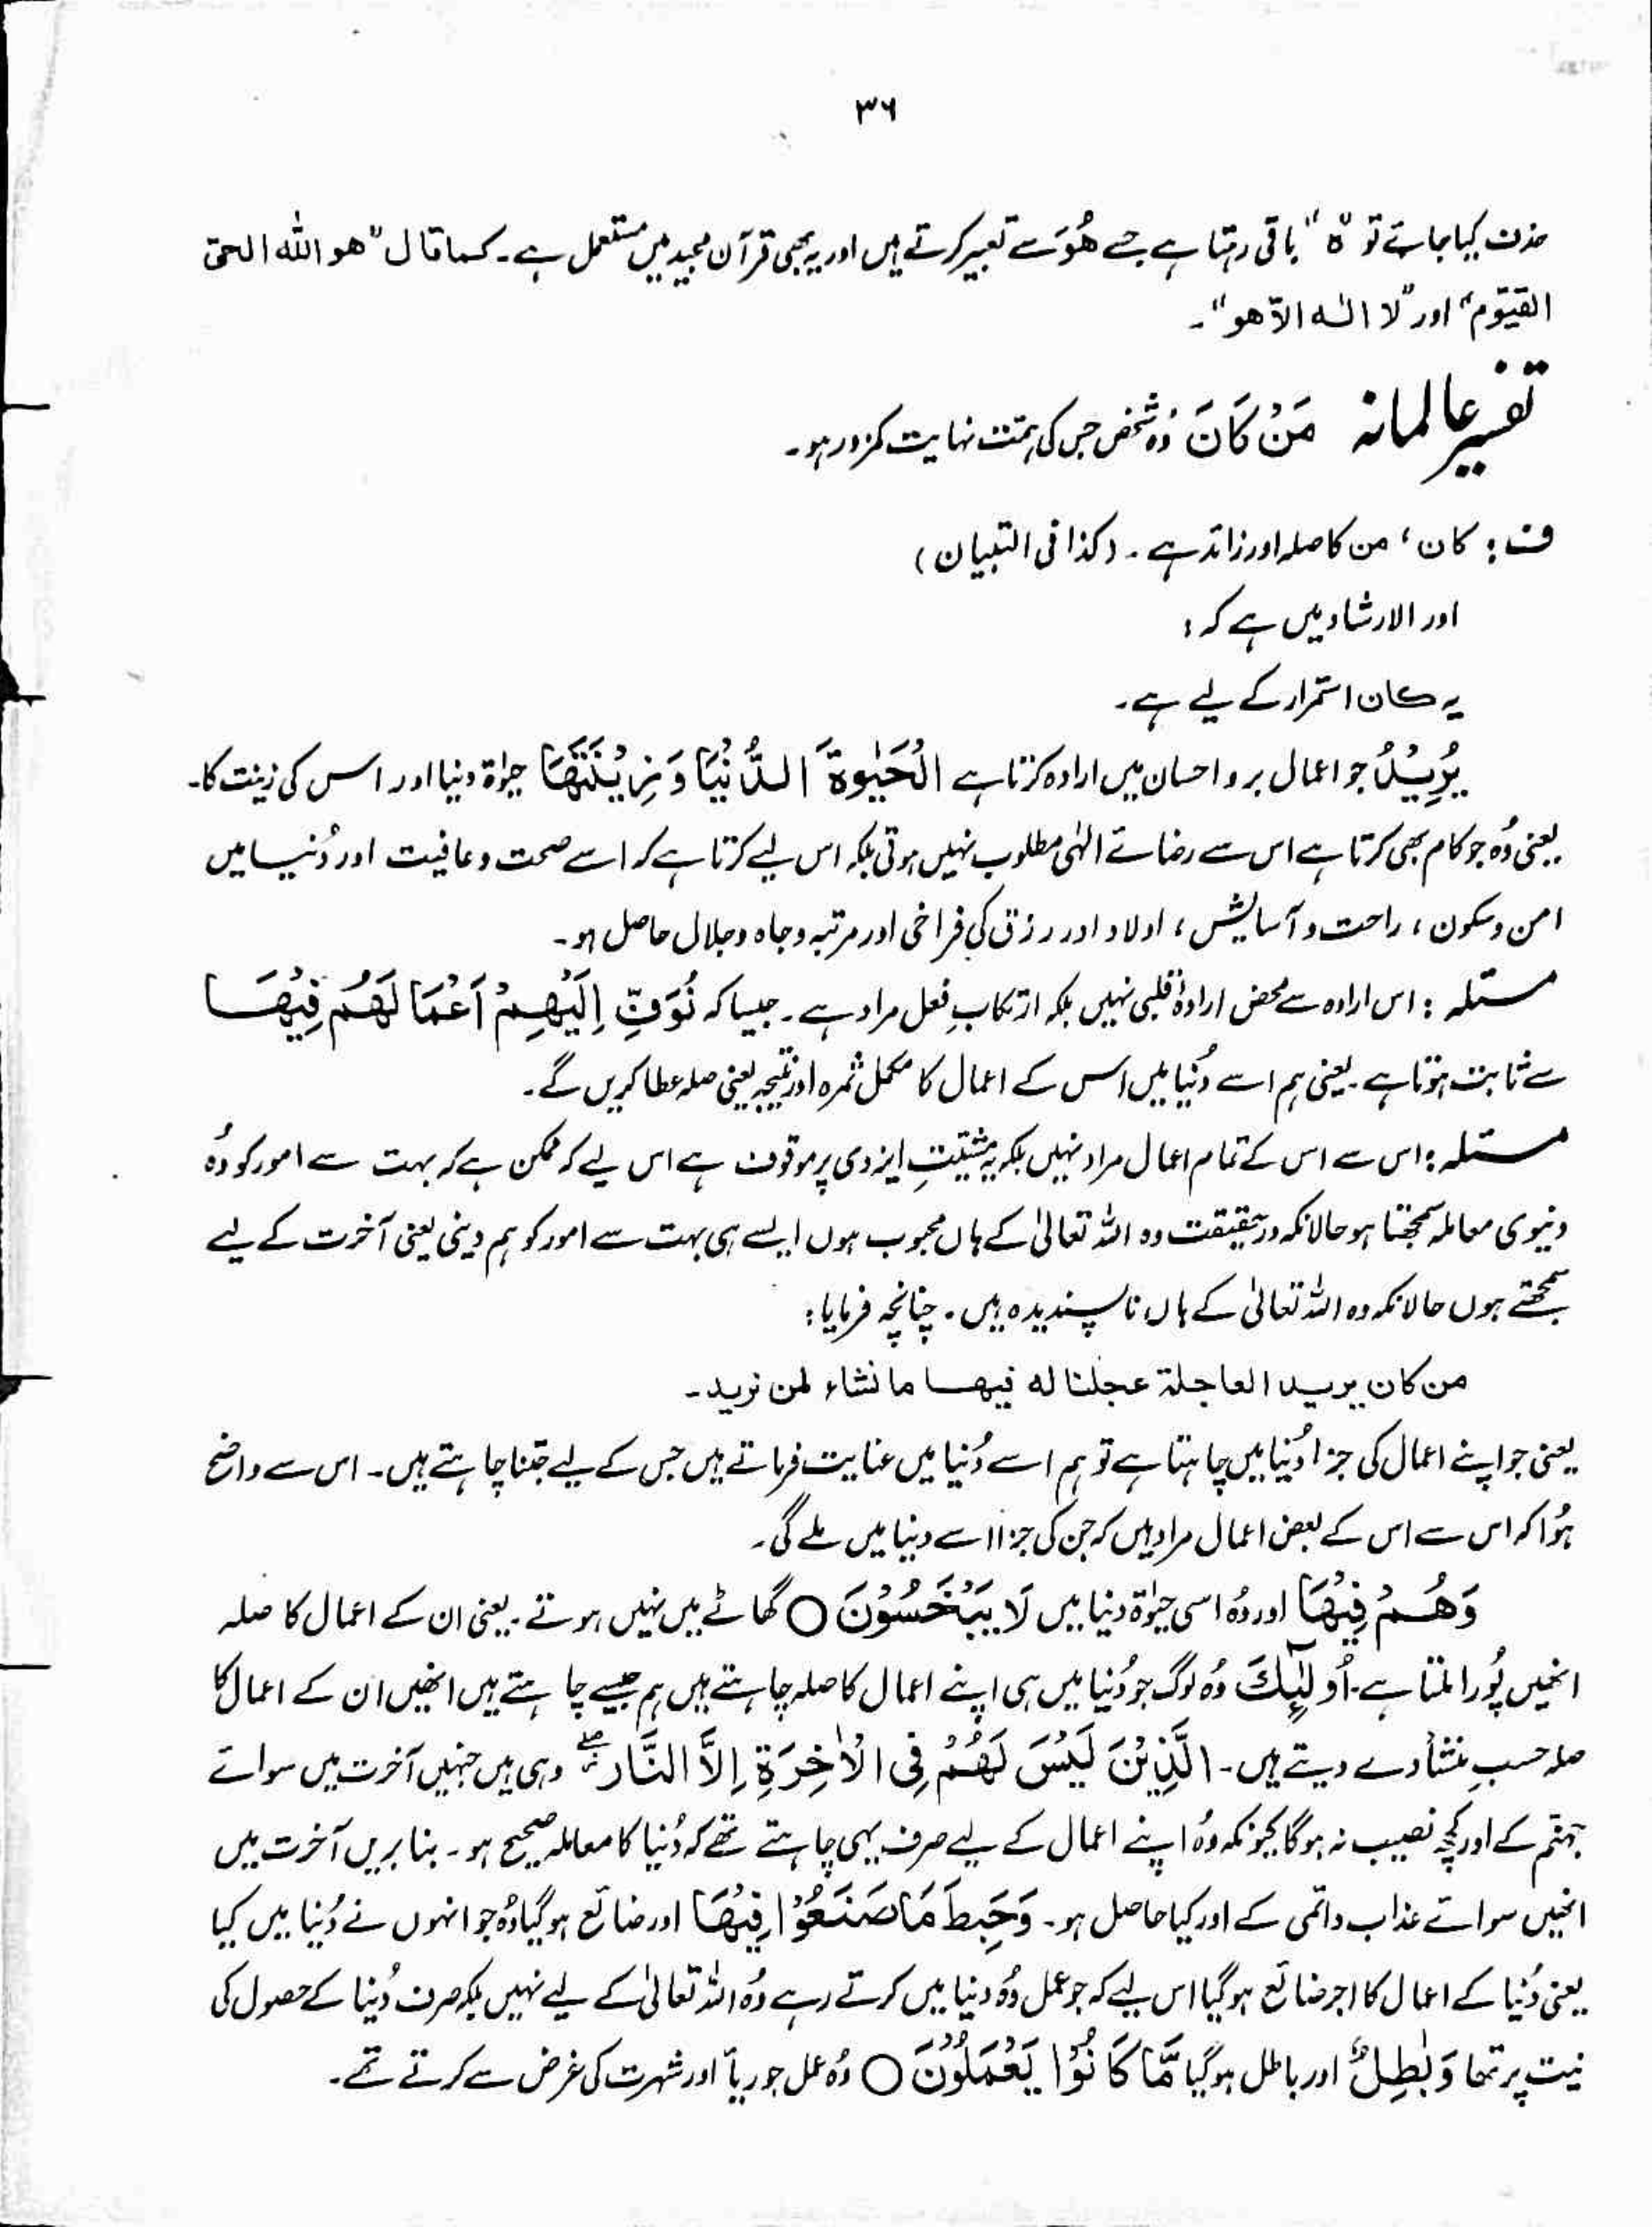 ۳۶
حذف کیا جائے تو "ہ" باقی رہتا ہے جسے ھُوَ سے تعبیر کرتے ہیں اور یہ بھی قرآن مجید میں مستعمل ہے۔ کما قال "ھو اللہ الحیّ
القیّوم" اور "لا الٰہ الاّ ھو"۔
تفسیر عالمانہ مَنْ كَانَ وُہ شخص جس کی ہمّت نہایت کمزور ہو۔
ف: کان، من کا صلہ اور زائد ہے۔ (کذا فی التبیان)
اور الارشاد میں ہے کہ:
یہ کان استمرار کے لیے ہے۔
يُرِيْدُ جو اعمال بر و احسان میں ارادہ کرتا ہے الْحَيٰوةَ الدُّنْيَا وَ زِيْنَتَهَا حیٰوۃ دنیا اور اس کی زینت کا۔
یعنی وُہ جو کام بھی کرتا ہے اس سے رضائے الٰہی مطلوب نہیں ہوتی بلکہ اس لیے کرتا ہے کہ اسے صحت و عافیت اور دُنیا میں
امن و سکون، راحت و آسایش، اولاد اور رزق کی فراخی اور مرتبہ و جاہ و جلال حاصل ہو۔
مسئلہ: اس ارادہ سے محض ارادۂ قلبی نہیں بلکہ ارتکابِ فعل مراد ہے۔ جیسا کہ نُوَفِّ اِلَيْهِمْ اَعْمَالَهُمْ فِيْهَا
سے ثابت ہوتا ہے۔ یعنی ہم اسے دُنیا میں اس کے اعمال کا مکمل ثمرہ اور نتیجہ یعنی صلہ عطا کریں گے۔
مسئلہ: اس سے اس کے تمام اعمال مراد نہیں بلکہ یہ مشیّتِ ایزدی پر موقوف ہے اس لیے کہ ممکن ہے کہ بہت سے امور کو وُہ
دنیوی معاملہ سمجھتا ہو حالانکہ درحقیقت وہ اللہ تعالیٰ کے ہاں محبوب ہوں ایسے ہی بہت سے امور کو ہم دینی یعنی آخرت کے لیے
سمجھتے ہوں حالانکہ وہ اللہ تعالیٰ کے ہاں ناپسندیدہ ہیں۔ چنانچہ فرمایا:
من کان یرید العاجلۃ عجلنا لہ فیھا ما نشاء لمن نرید۔
یعنی جو اپنے اعمال کی جزا دُنیا میں چاہتا ہے تو ہم اسے دُنیا میں عنایت فرماتے ہیں جس کے لیے جتنا چاہتے ہیں۔ اس سے واضح
ہُوا کہ اس سے اس کے بعض اعمال مراد ہیں کہ جن کی جزا اسے دنیا میں ملے گی۔
وَهُمْ فِيْهَا اور وُہ اسی حیٰوۃ دنیا میں لَا يُبْخَسُوْنَ ○ گھاٹے میں نہیں ہوتے۔ یعنی ان کے اعمال کا صلہ
انھیں پُورا ملتا ہے۔ اُولٰٓئِكَ وُہ لوگ جو دُنیا میں ہی اپنے اعمال کا صلہ چاہتے ہیں ہم جیسے چاہتے ہیں انھیں ان کے اعمال کا
صلہ حسبِ منشأ دے دیتے ہیں۔ الَّذِيْنَ لَيْسَ لَهُمْ فِى الْاٰخِرَةِ اِلَّا النَّارُ وہی ہیں جنہیں آخرت میں سوائے
جہنّم کے اور کچھ نصیب نہ ہوگا کیونکہ وُہ اپنے اعمال کے لیے صرف یہی چاہتے تھے کہ دُنیا کا معاملہ صحیح ہو۔ بنا بریں آخرت میں
انھیں سوائے عذاب دائمی کے اور کیا حاصل ہو۔ وَحَبِطَ مَا صَنَعُوْا فِيْهَا اور ضائع ہو گیا وُہ جو انہوں نے دُنیا میں کیا
یعنی دُنیا کے اعمال کا اجر ضائع ہوگیا اس لیے کہ جو عمل وُہ دنیا میں کرتے رہے وُہ اللہ تعالیٰ کے لیے نہیں بلکہ صرف دُنیا کے حصول کی
نیت پر تھا وَبٰطِلٌ اور باطل ہوگیا مَّا كَانُوْا يَعْمَلُوْنَ ○ وُہ عمل جو ریأ اور شہرت کی غرض سے کرتے تھے۔